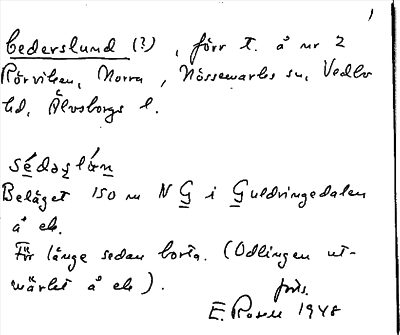 1
Cederslund (?), förr t. å nr 2
Rörviken, Norra, Nössemarks sn, Vedbo
hd, Älvsborgs l.
sédəʂlưn
Beläget 150 m N G i Guldringedalen
å ek.
För länge sedan borta. (Odlingen ut-
märkt å ek).
forts.
E. Rosell 1948